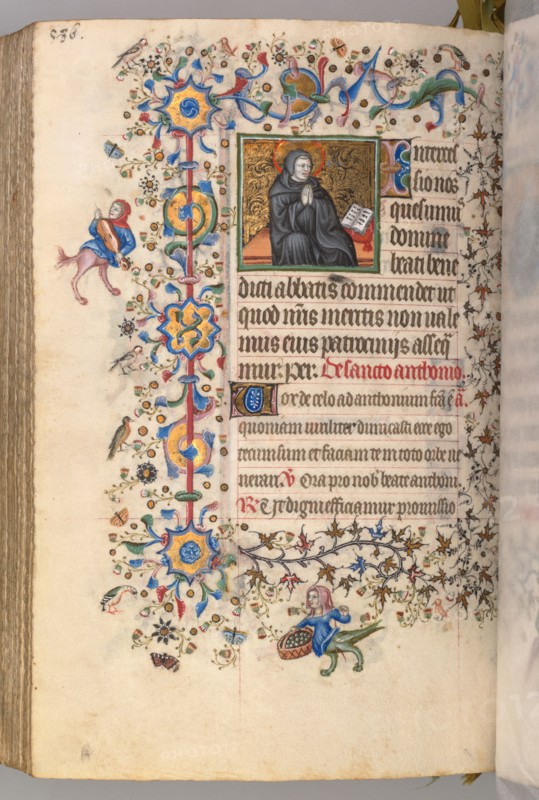 536.
Interces
sio nos
quesumus
domine
beati bene
dicti abbatis commendet ut
quod nris meritis non vale
mus eius patrocinijs asseq
mur. per. De sancto anthonio.
Vox de celo ad anthonium fca e a.
quoniam viriliter dimicasti ecce ego
tecum sum et faciam te in toto orbe no
minari. V Ora pro nob beate anthoni.
R Ut digni efficiamur promissio